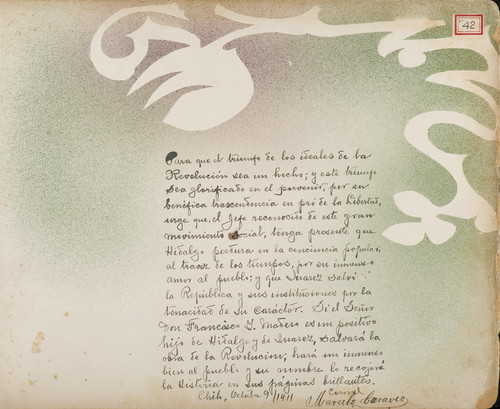 42
Para que el triunfo de los ideales de la
Revolución sea un hecho; y este triunfo
sea glorificado en el porvenir, por su
benéfica trascendencia en pró de la libertad,
urge que, el Jefe reconocido de este gran
movimiento social, tenga presente que
Hidalgo perdura en la conciencia popular,
al travez de los tiempos, por su inmenso
amor al pueblo; y que Juarez salvó
la República y sus instituciones por la
tenacidad de su Carácter. Si el Señor
Don Francisco I. Madero es un positivo
hijo de Hidalgo y de Juarez, salvará la
obra de la Revolución; hará un inmenso
bien al pueblo y su nombre lo recojerá
la Historia en sus páginas brillantes.
Chih, Octubre 9/1911
Coronel
Marcelo Caraveo